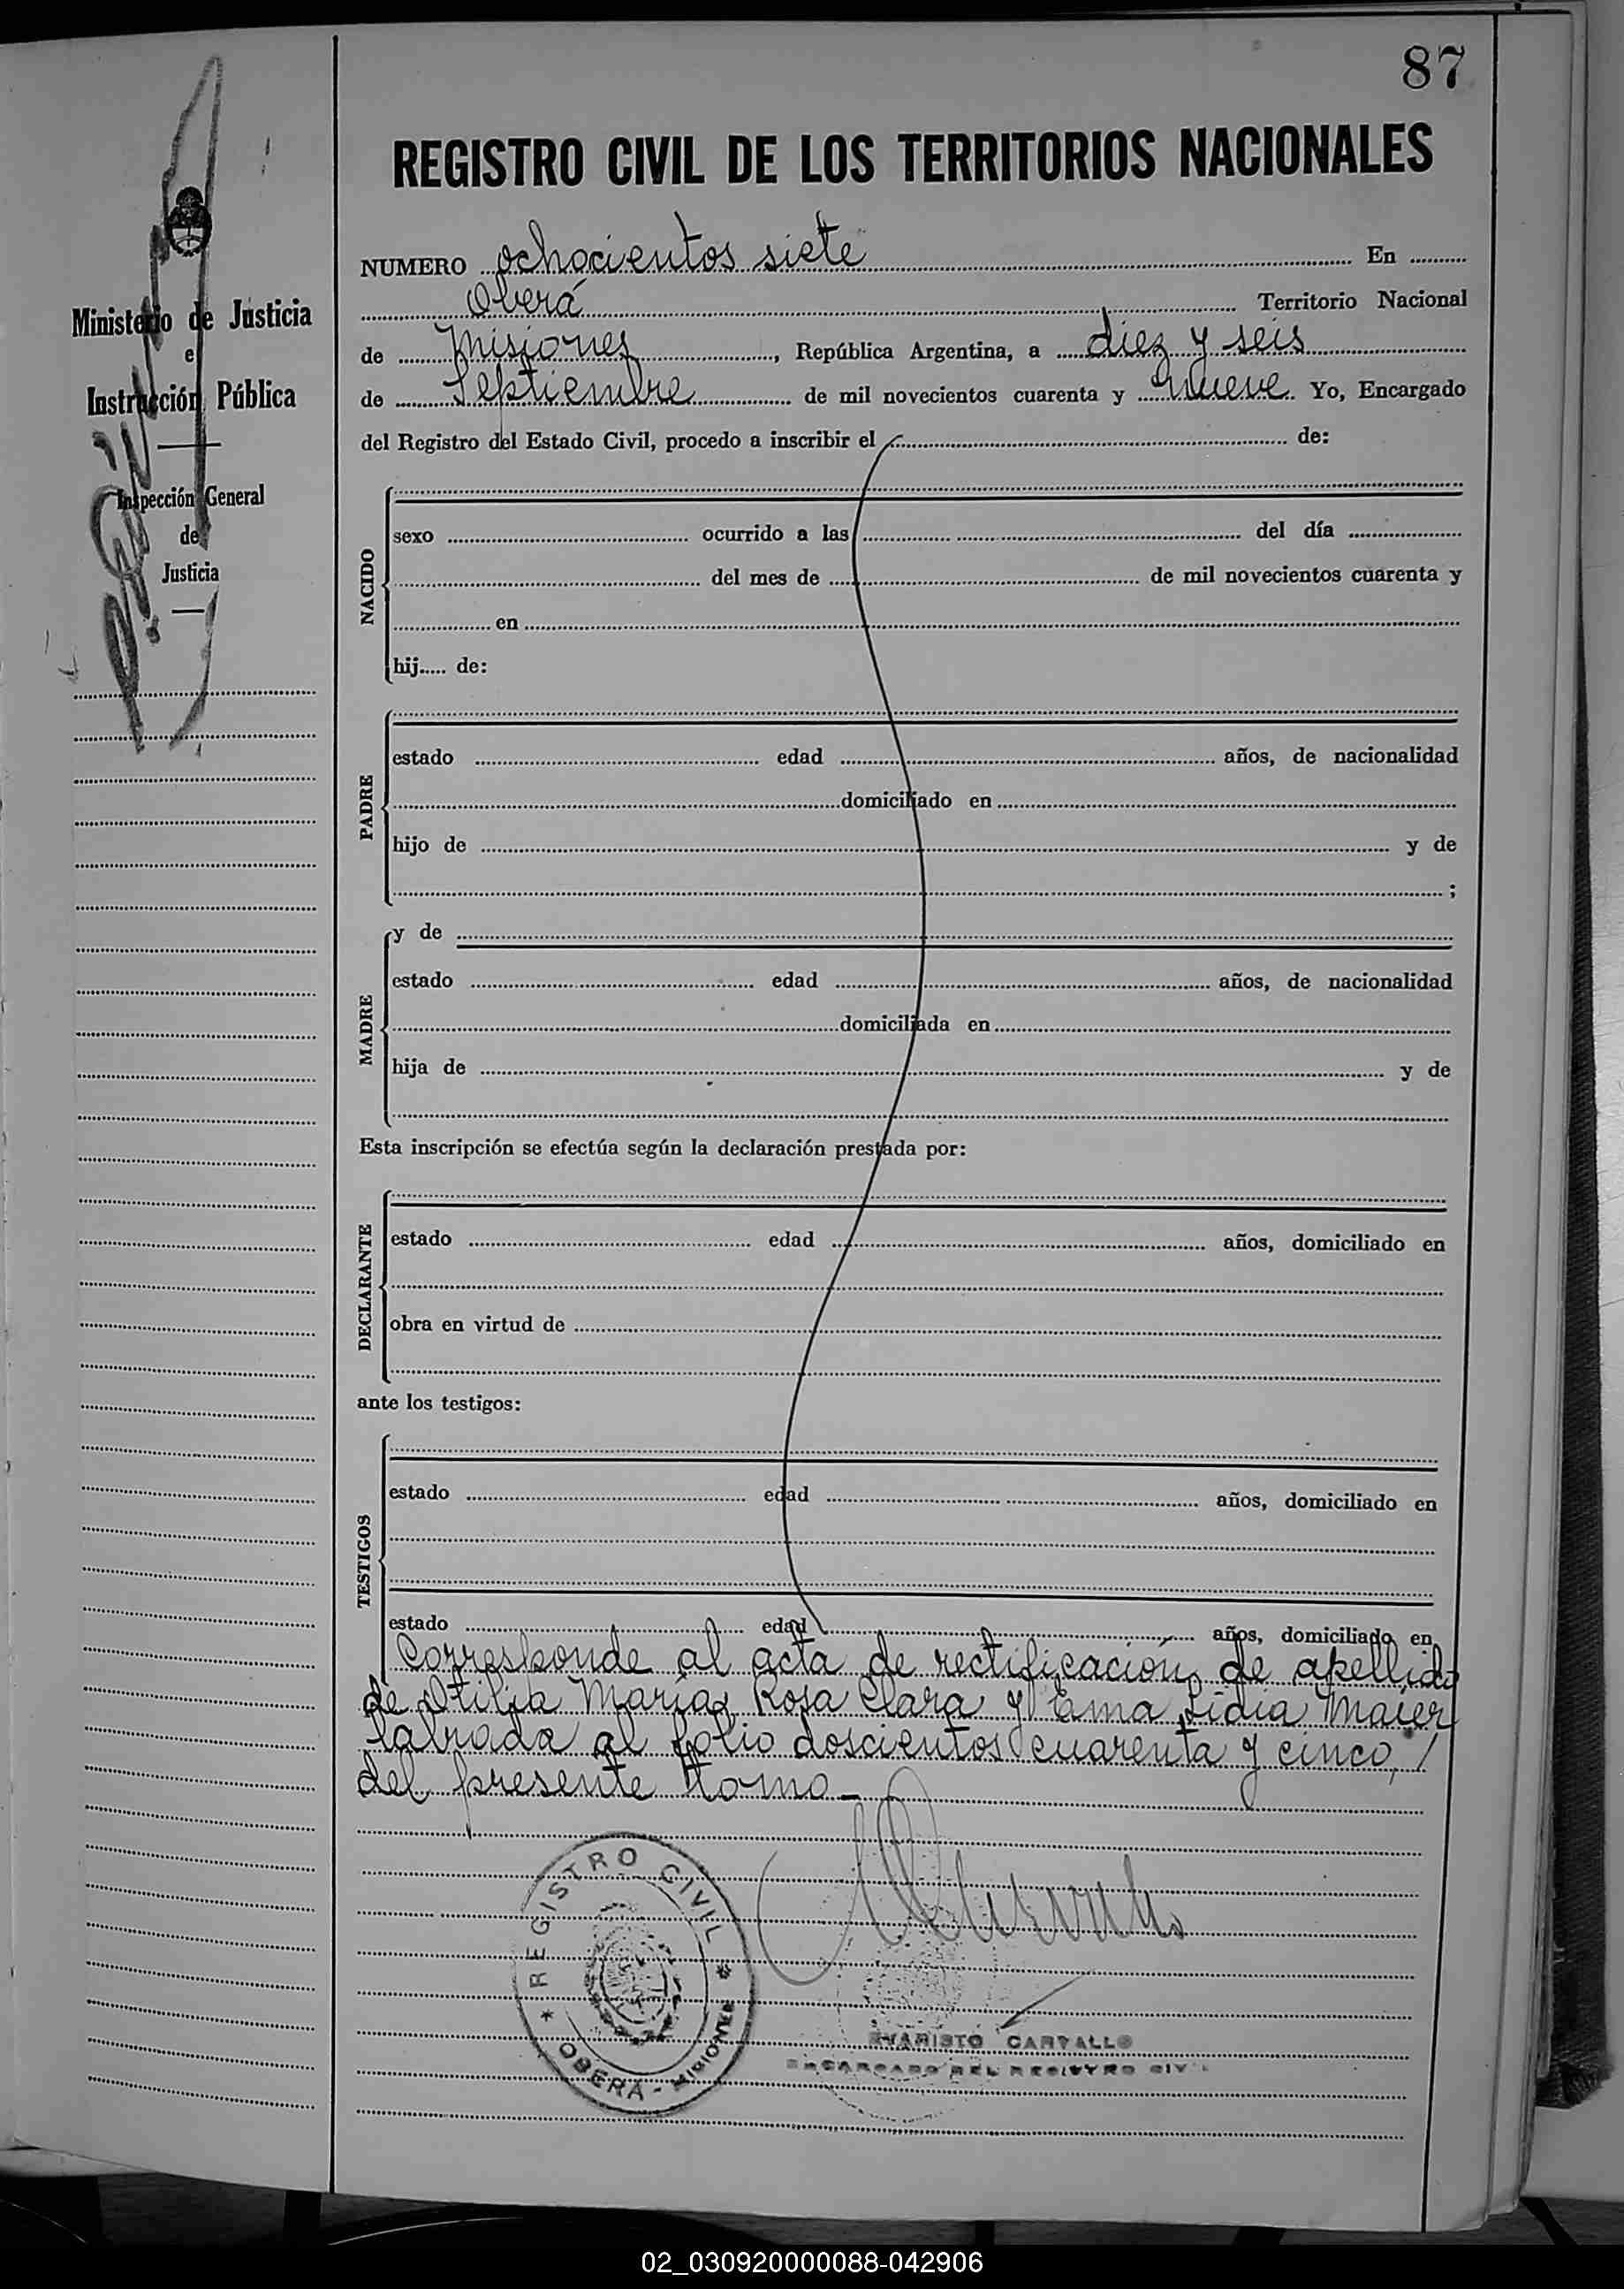 87
REGISTRO CIVIL DE LOS TERRITORIOS NACIONALES
NUMERO ochocientos siete En
Oberá Territorio Nacional
de Misiones, República Argentina, a diez y seis
de Septiembre de mil novecientos cuarenta y nueve. Yo, Encargado
del Registro del Estado Civil, procedo a inscribir el de:
Ministerio de Justicia
e
Instrucción Pública
Inspección General
de
Justicia
NACIDO
sexo ocurrido a las del día
del mes de de mil novecientos cuarenta y
en
hij..... de:
PADRE
estado edad años, de nacionalidad
domiciliado en
hijo de y de
;
MADRE
y de
estado edad años, de nacionalidad
domiciliada en
hija de y de
Esta inscripción se efectúa según la declaración prestada por:
DECLARANTE
estado edad años, domiciliado en
obra en virtud de
ante los testigos:
TESTIGOS
estado edad años, domiciliado en
estado edad años, domiciliado en
Corresponde al acta de rectificación de apellido
de Otilia María, Rosa Clara y Ema Lidia Maier
labrada al folio doscientos cuarenta y cinco, /
del presente tomo_
REGISTRO CIVIL
* OBERÁ - MISIONES *
EVARISTO CARVALLO
ENCARGADO DEL REGISTRO CIVIL
02_030920000088-042906